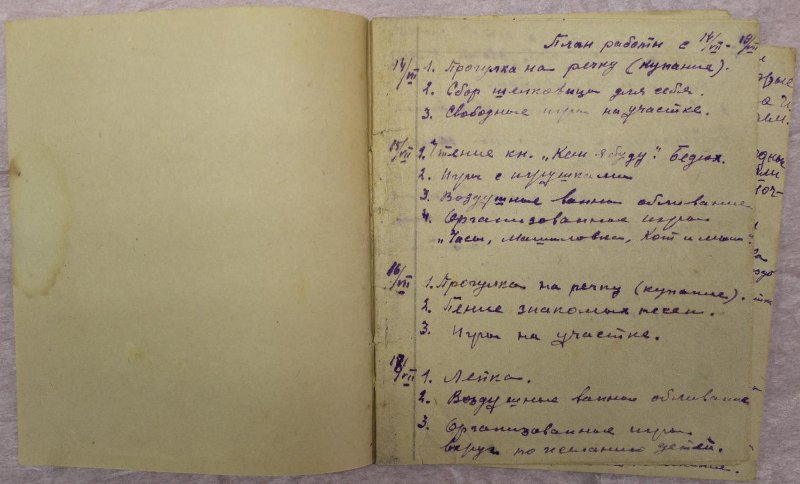 План работы с 14/VII - 18/VII
14/VII 1. Прогулка на речку (купание).
2. Сбор шелковицы для себя.
3. Свободные игры на участке.
15/VII 1. Чтение кн. "Кем я буду".
2. Игры с игрушками
3. Воздушные ванны обливание
4. Организованные игры
"Часы, Кот и мыши".
16/VII 1. Прогулка на речку (купание).
2. Пение знакомых песен.
3. Игры на участке.
VII 1. Лепка.
2. Воздушные ванны обливание
3. Организованные игры
по желанию детей.